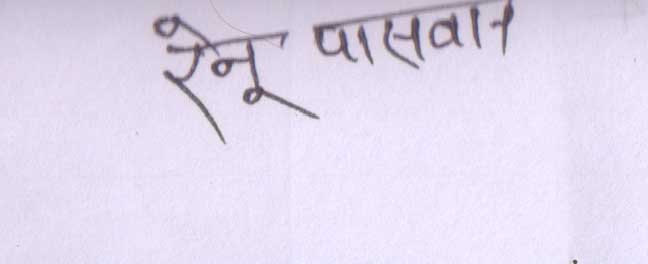 रेनू पासवान